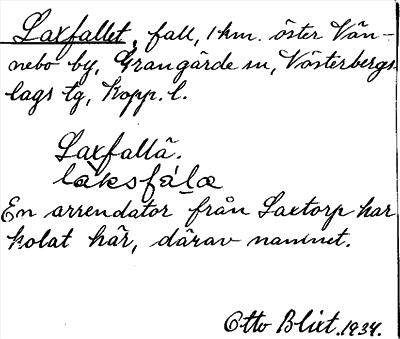 Laxfallet, fall, 1 km. öster Vän-
nebo by, Grangärde sn, Västerbergs-
lags tg, Kopp. l.
Laxfallä.
làksfálæ
En arrendator från Laxtorp har
kolat här, därav namnet.
Otto Blixt. 1934.